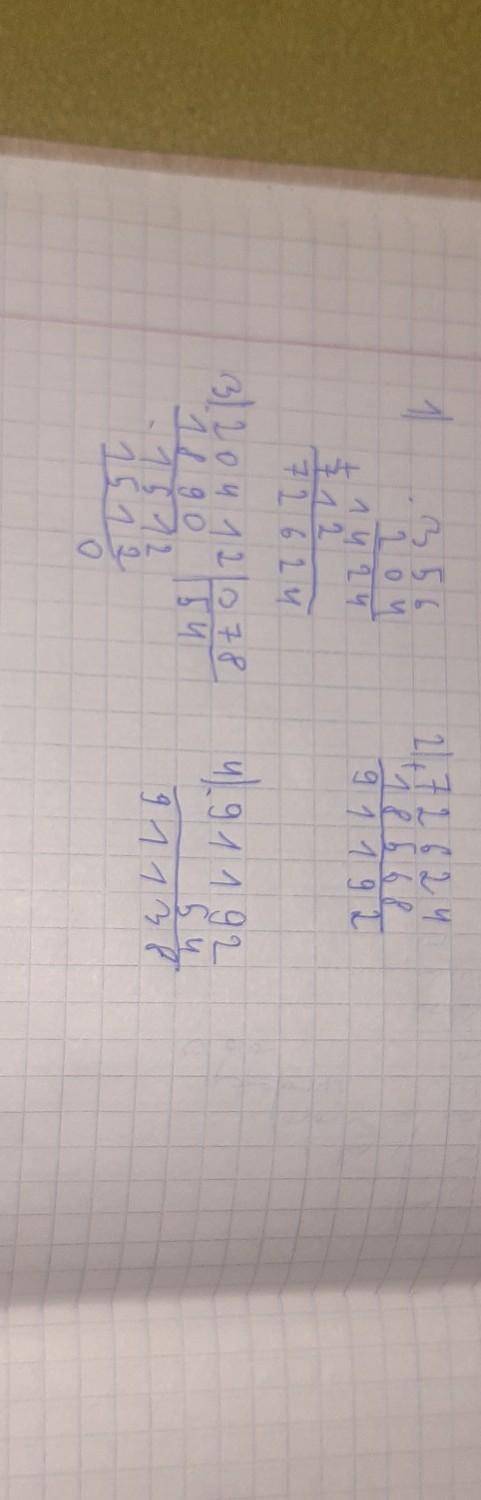 1)
· 356
204
1424
+ 712
72624
2) + 72624
18568
91192
3) 20412 | 378
1890 | 54
- 1512
1512
0
4) - 91192
54
91138